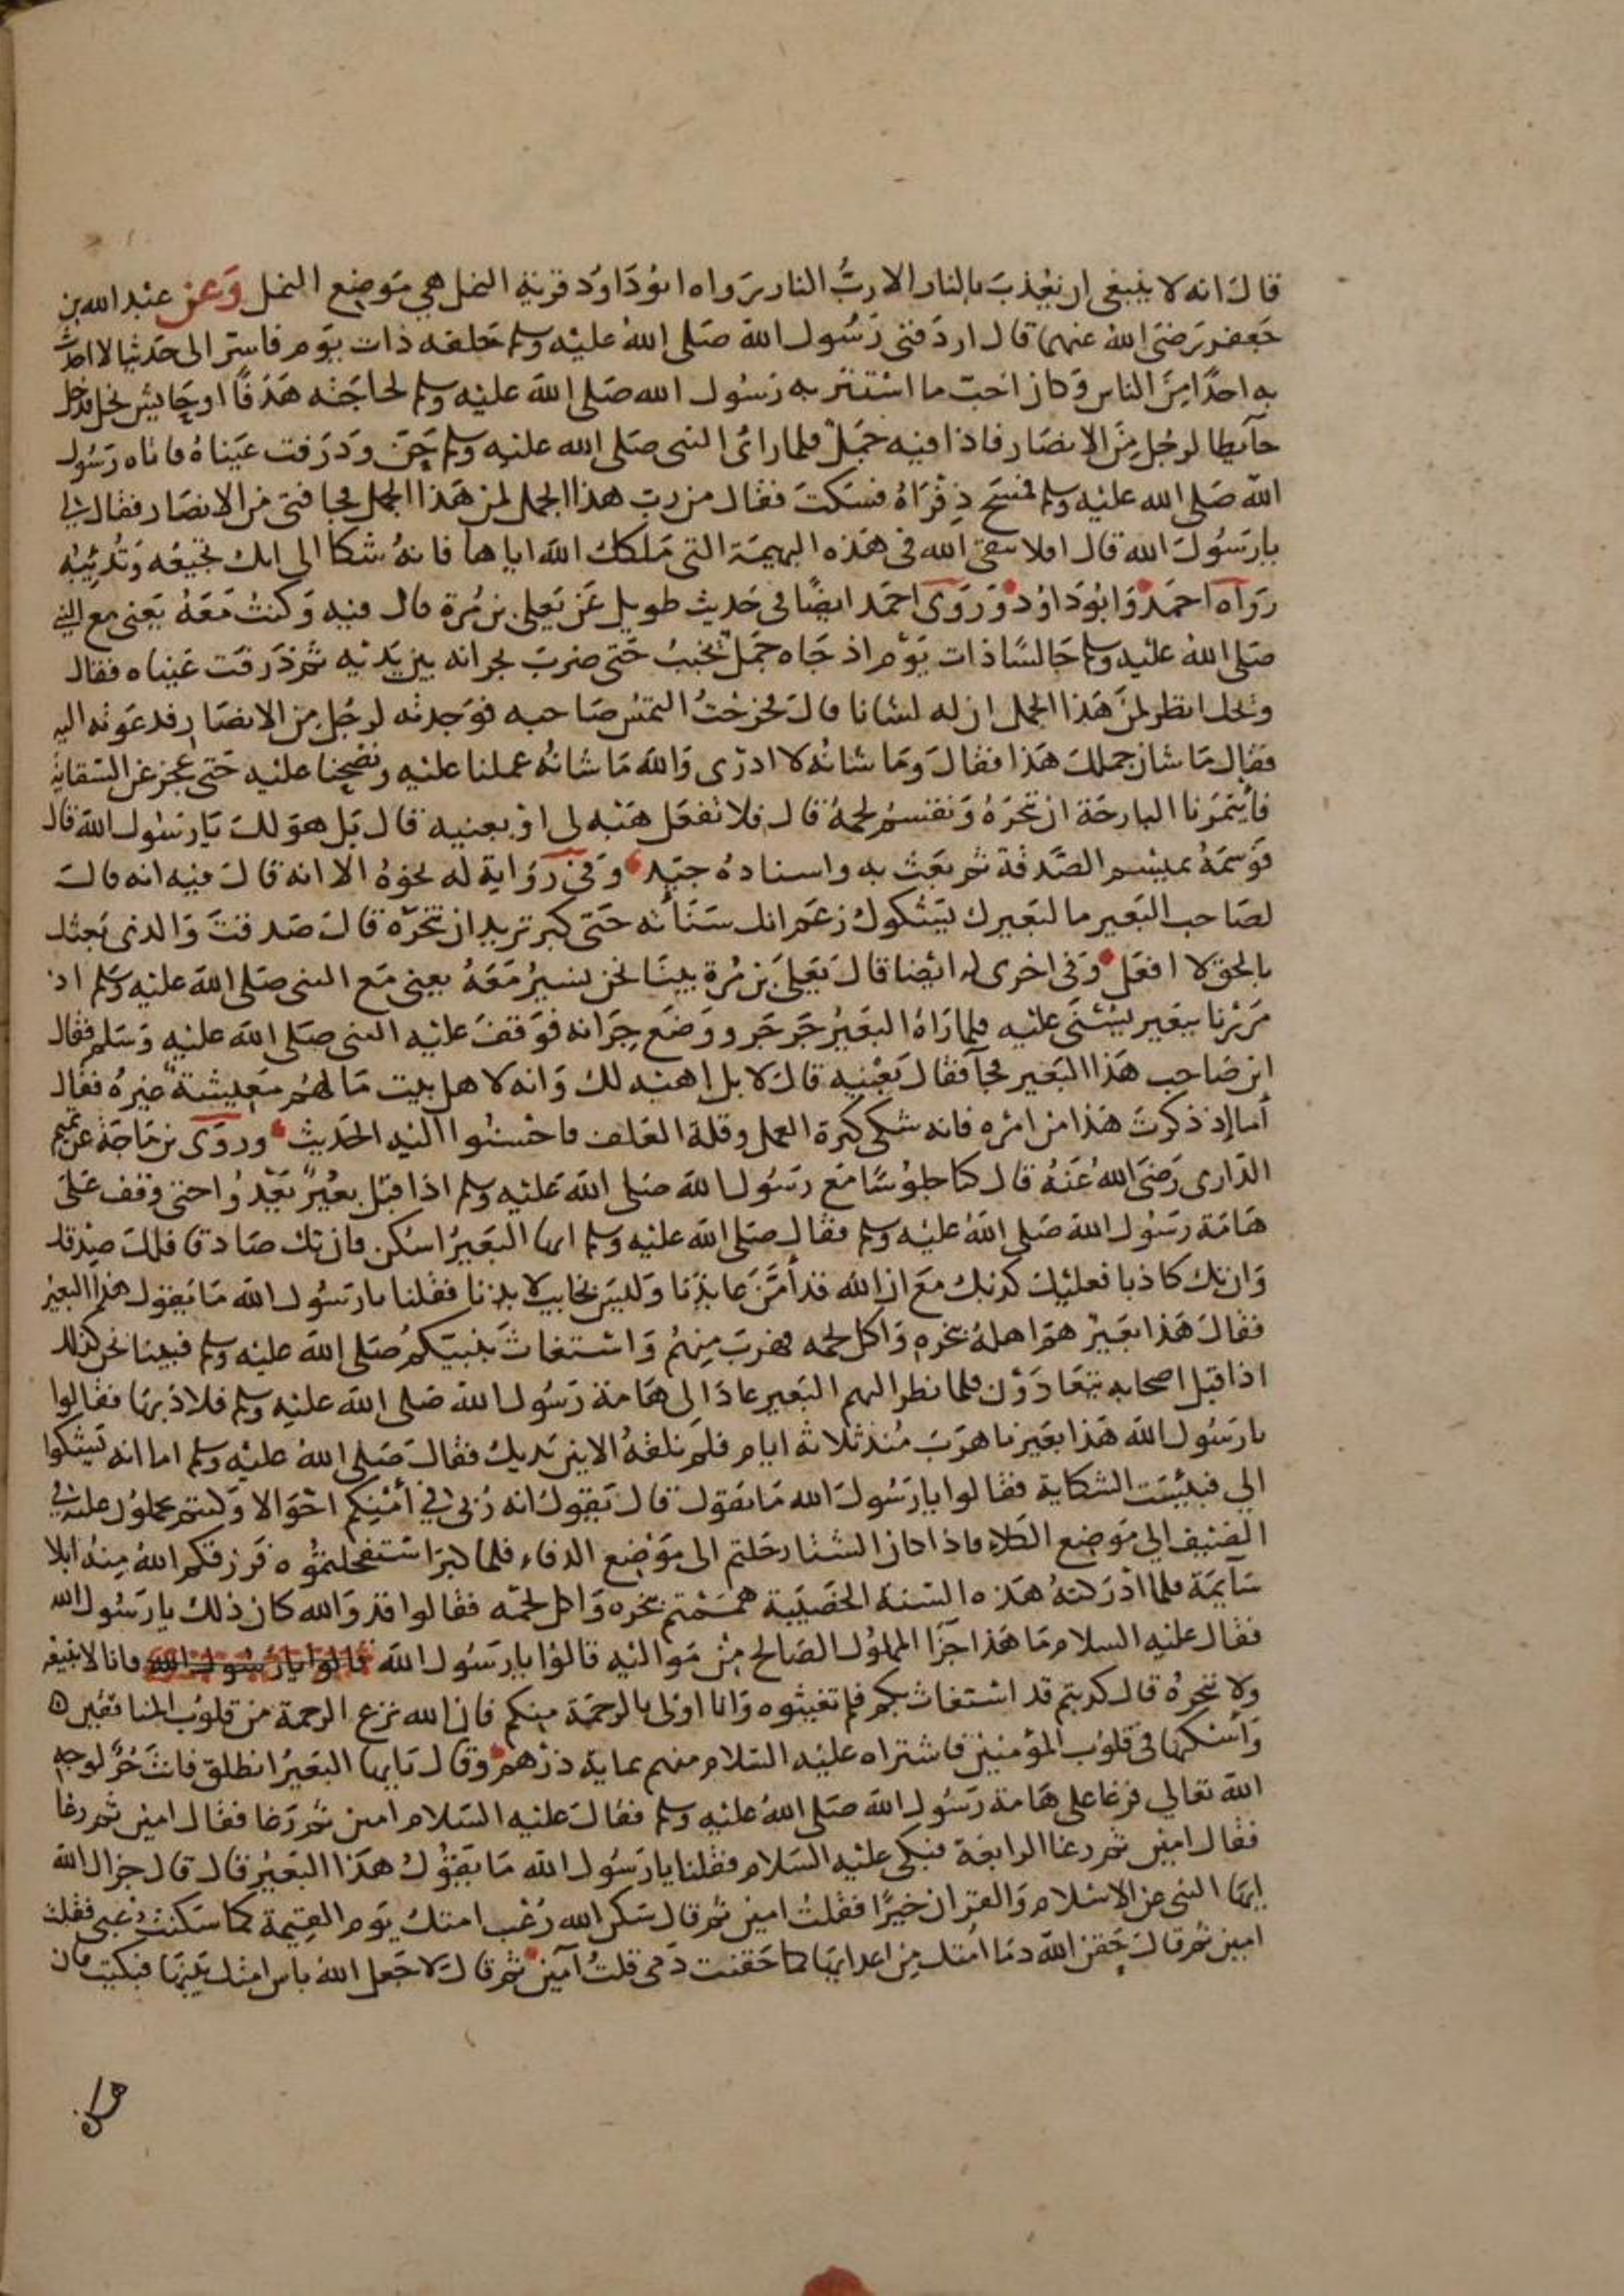 قال انه لا ينبغي ان يعذب بالنار الا رب النار رواه ابو داود قرية النمل هي موضع النمل وعن عبد الله بن
جعفر رضي الله عنهما قال اردفني رسول الله صلى الله عليه وسلم خلفه ذات يوم فاسر الي حديثا لا احدث
به احدا من الناس وكان احب ما استتر به رسول الله صلى الله عليه وسلم لحاجته هدفا او حايش نخل فدخل
حآيطا لرجل من الانصار فاذا فيه جمل فلما راى النبي صلى الله عليه وسلم حن وذرفت عيناه فاتاه رسول
الله صلى الله عليه وسلم فمسح ذفراه فسكت فقال من رب هذا الجمل لمن هذا الجمل فجا فتى من الانصار فقال لي
يا رسول الله قال افلا تتقي الله في هذه البهيمة التي ملكك الله اياها فانه شكا الى انك تجيعه وتدئبه
رواه احمد وابو داود وروى احمد ايضا في حديث طويل عن يعلى بن مرة قال فيه وكنت معه يعني مع النبي
صلى الله عليه وسلم جالسا ذات يوم اذ جاه جمل يخبب حتى ضرب بجرانه بين يديه ثم ذرفت عيناه فقال
ويحك انظر لمن هذا الجمل ان له لشانا قال فخرجت التمس صاحبه فوجدته لرجل من الانصار فدعوته اليه
فقال ما شان جملك هذا فقال وما شانه لا ادرى والله ما شانه عملنا عليه ونضحنا عليه حتى عجز عن السقاية
فأيتمرنا البارحة ان ننحره ونقسم لحمه قال فلا تفعل هبه لي او بعنيه قال بل هو لك يا رسول الله قال
فوسمه بميسم الصدقة ثم بعث به واسناده جيد وفي رواية له نحوه الا انه قال فيه انه قال
لصاحب البعير ما لبعيرك يشكوك زعم انك سنأته حتى كبر تريد ان تنحره قال صدقت والذي بعثك
بالحق لا افعل وفي اخرى له ايضا قال يعلى بن مرة بينا نحن نسير معه يعني مع النبي صلى الله عليه وسلم اذ
مررنا ببعير يسنى عليه فلما راه البعير جرجر ووضع جرانه فوقف عليه النبي صلى الله عليه وسلم فقال
اين صاحب هذا البعير فجآ فقال بعنيه قال لا بل اهبه لك وانه لاهل بيت ما لهم معيشة غيره فقال
أما إذ ذكرت هذا من امره فانه شكى كثرة العمل وقلة العلف فاحسنوا اليه الحديث وروى بن ماجة عن تميم
الدارى رضي الله عنه قال كنا جلوسا مع رسول الله صلى الله عليه وسلم اذ اقبل بعير يعدوا حتى وقف على
هامة رسول الله صلى الله عليه وسلم فقال صلى الله عليه وسلم ايها البعير اسكن فان تك صادقا فلك صدقك
وان تك كاذبا فعليك كذبك مع ان الله قد أمن عايذنا وليس بخايب لايذنا فقلنا يا رسول الله ما يقول هذا البعير
فقال هذا بعير هم اهله بنحره واكل لحمه فهرب منهم واستغاث بنبيكم صلى الله عليه وسلم فبينا نحن كذلك
اذ اقبل اصحابه يتعادون فلما نظر اليهم البعير عاد الى هامة رسول الله صلى الله عليه وسلم فلاذ بها فقالوا
يا رسول الله هذا بعيرنا هرب منذ ثلاثه ايام فلم نلقه الا بين يديك فقال صلى الله عليه وسلم اما انه يشكوا
الي فبئست الشكاية فقالوا يا رسول الله ما يقول قال يقول انه ربى في أمنكم احوالا وكنتم تحملون عليه في
الصيف الي موضع الكلاء فاذا كان الشتا رحلتم الى موضع الدفاء فلما كبر استفحلتموه فرزقكم الله منه ابلا
سآيمة فلما ادركته هذه السنة الخصيبة هممتم بنحره واكل لحمه فقالوا قد والله كان ذلك يا رسول الله
فقال عليه السلام ما هذا جزآ المملوك الصالح من مواليه قالوا يا رسول الله قالوا يا رسول الله فانا لا نبيعه
ولا ننحره قال كذبتم قد استغاث بكم فلم تغيثوه وانا اولى بالرحمة منكم فان الله نزع الرحمة من قلوب المنافقين
وأسكنها في قلوب المؤمنين فاشتراه عليه السلام منهم بماية درهم وقال يا ايها البعير انطلق فانت حر لوجه
الله تعالي فرغا على هامة رسول الله صلى الله عليه وسلم فقال عليه السلام امين ثم رغا فقال امين ثم رغا
فقال امين ثم رغا الرابعة فبكى عليه السلام فقلنا يا رسول الله ما يقول هذا البعير قال قال جزاك الله
ايها النبي عن الاسلام والقران خيرا فقلت امين ثم قال سكن الله رعب امتك يوم القيمة كما سكنت رعبي فقلت
امين ثم قال حقن الله دما امتك من اعدايها كما حقنت دمى قلت آمين ثم قال لا جعل الله باس امتك بينها فبكيت فان